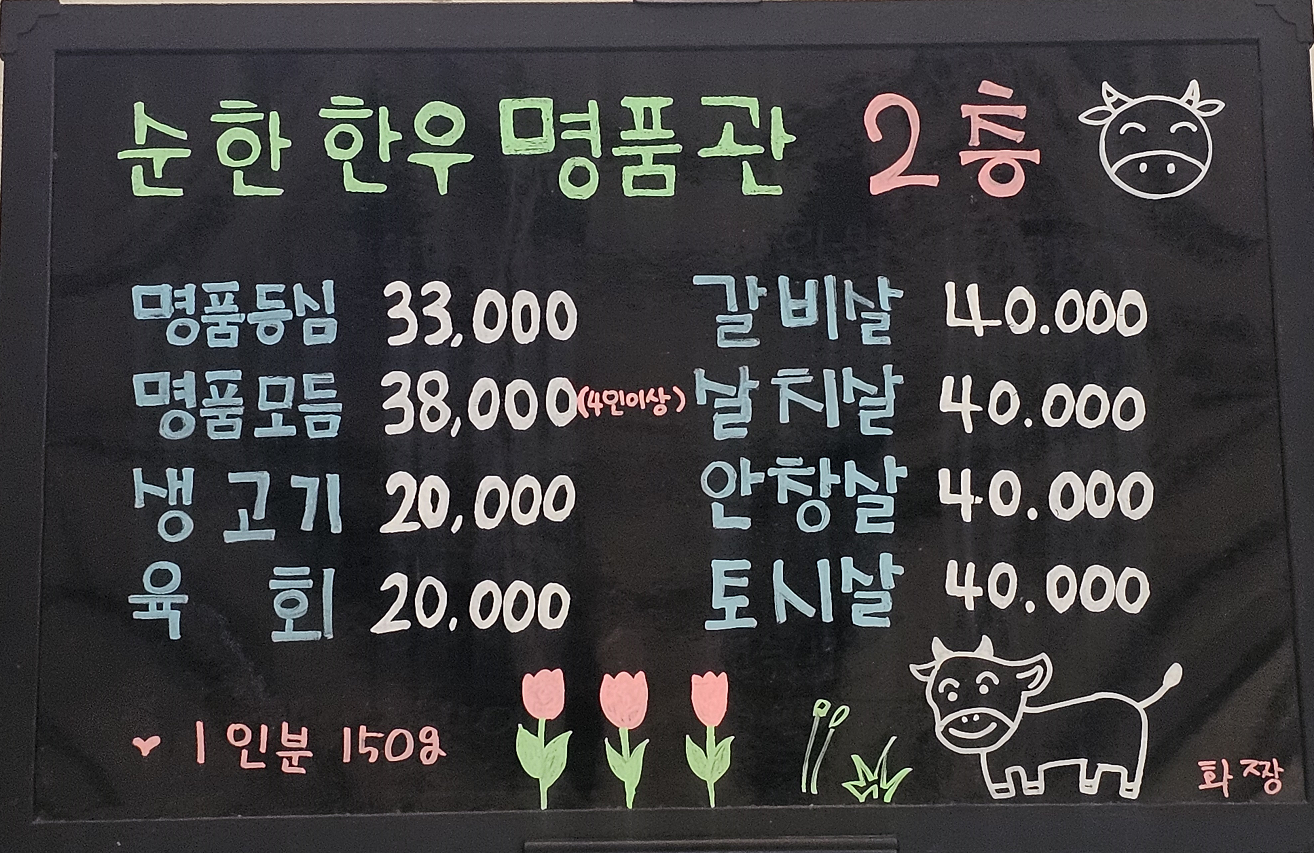 순한한우명품관 2층
명품등심 33,000 갈비살 40.000
명품모듬 38,000(4인이상) 살치살 40.000
생고기 20,000 안창살 40.000
육회 20.000 토시살 40.000
♥ 1인분 150g
화장